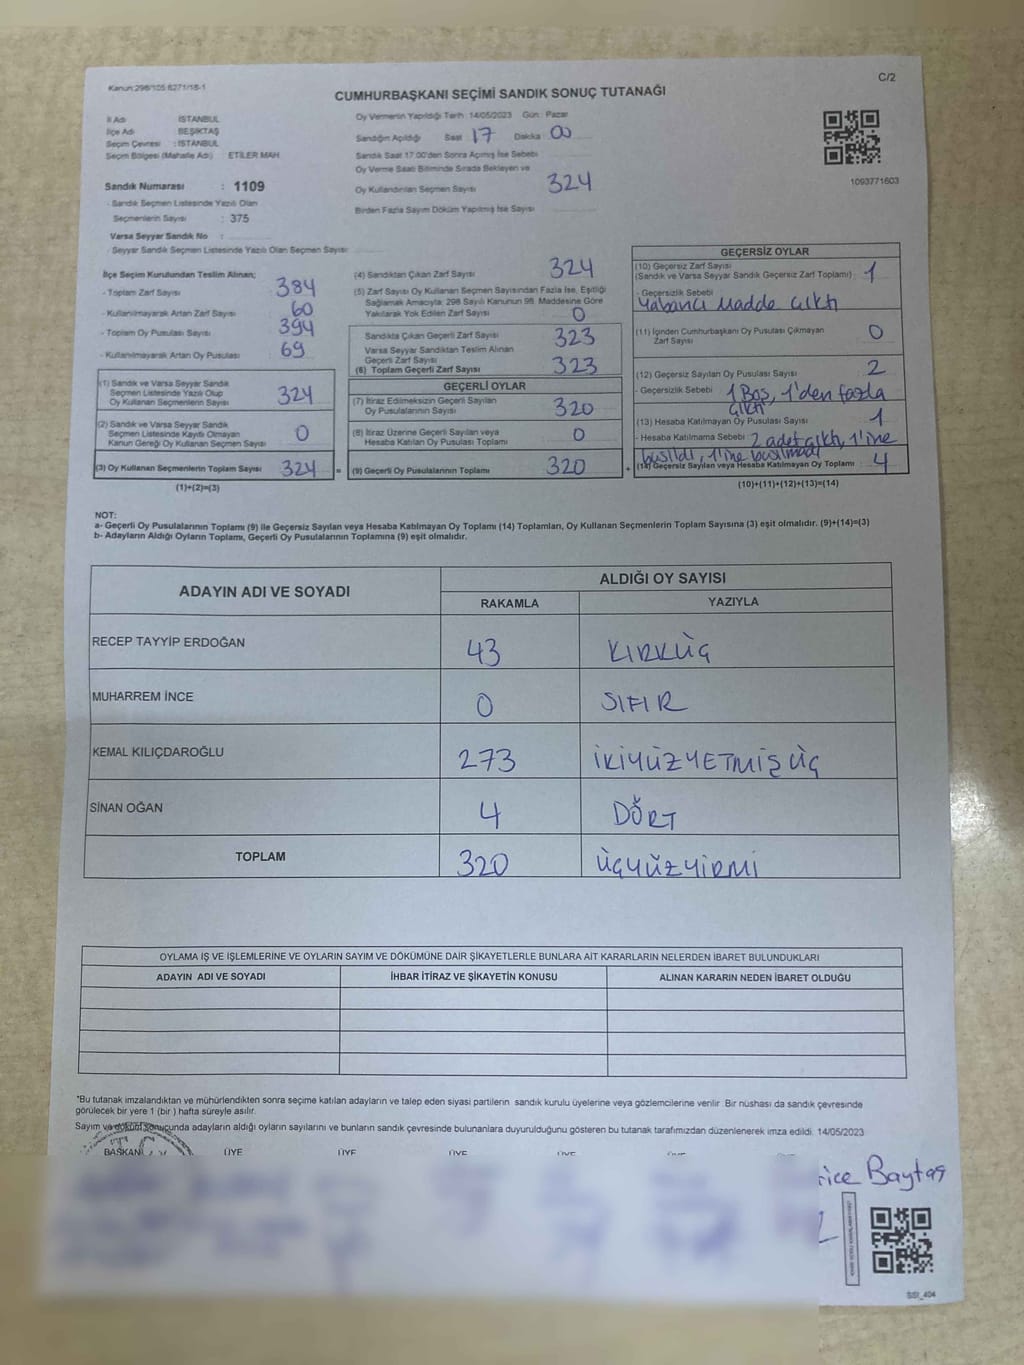 Kanun:298/105.6271/18-1
C/2
CUMHURBAŞKANI SEÇİMİ SANDIK SONUÇ TUTANAĞI
İl Adı İSTANBUL
İlçe Adı BEŞİKTAŞ
Seçim Çevresi : İSTANBUL
Seçim Bölgesi (Mahalle Adı) ETİLER MAH
Sandık Numarası : 1109
- Sandık Seçmen Listesinde Yazılı Olan
Seçmenlerin Sayısı : 375
Varsa Seyyar Sandık No :
- Seyyar Sandık Seçmen Listesinde Yazılı Olan Seçmen Sayısı:
Oy Vermenin Yapıldığı Tarih: 14/05/2023 Gün: Pazar
Sandığın Açıldığı Saat 17 Dakika 00
Sandık Saat 17.00'den Sonra Açılmış İse Sebebi
Oy Verme Saati Bitiminde Sırada Bekleyen ve
Oy Kullandırılan Seçmen Sayısı 324
Birden Fazla Sayım Döküm Yapılmış İse Sayısı
1093771603
İlçe Seçim Kurulundan Teslim Alınan;
- Toplam Zarf Sayısı 384
- Kullanılmayarak Artan Zarf Sayısı 60
- Toplam Oy Pusulası Sayısı 394
- Kullanılmayarak Artan Oy Pusulası 69
(1) Sandık ve Varsa Seyyar Sandık
Seçmen Listesinde Yazılı Olup
Oy Kullanan Seçmenlerin Sayısı 324
(2) Sandık ve Varsa Seyyar Sandık
Seçmen Listesinde Kayıtlı Olmayan
Kanun Gereği Oy Kullanan Seçmen Sayısı 0
(3) Oy Kullanan Seçmenlerin Toplam Sayısı 324 =
(1)+(2)=(3)
(4) Sandıktan Çıkan Zarf Sayısı 324
(5) Zarf Sayısı Oy Kullanan Seçmen Sayısından Fazla İse, Eşitliği
Sağlamak Amacıyla; 298 Sayılı Kanunun 98. Maddesine Göre
Yakılarak Yok Edilen Zarf Sayısı 0
Sandıkta Çıkan Geçerli Zarf Sayısı 323
Varsa Seyyar Sandıktan Teslim Alınan
Geçerli Zarf Sayısı
(6) Toplam Geçerli Zarf Sayısı 323
GEÇERLİ OYLAR
(7) İtiraz Edilmeksizin Geçerli Sayılan
Oy Pusulalarının Sayısı 320
(8) İtiraz Üzerine Geçerli Sayılan veya
Hesaba Katılan Oy Pusulası Toplamı 0
(9) Geçerli Oy Pusulalarının Toplamı 320 +
GEÇERSİZ OYLAR
(10) Geçersiz Zarf Sayısı
(Sandık ve Varsa Seyyar Sandık Geçersiz Zarf Toplamı) : 1
- Geçersizlik Sebebi
Yabancı Madde Çıktı
(11) İçinden Cumhurbaşkanı Oy Pusulası Çıkmayan
Zarf Sayısı 0
(12) Geçersiz Sayılan Oy Pusulası Sayısı : 2
- Geçersizlik Sebebi 1 Boş, 1'den fazla
çıktı
(13) Hesaba Katılmayan Oy Pusulası Sayısı : 1
- Hesaba Katılmama Sebebi 2 adet çıktı, 1'ine
basıldı, 1'ine basılmadı
(14) Geçersiz Sayılan veya Hesaba Katılmayan Oy Toplamı : 4
(10)+(11)+(12)+(13)=(14)
NOT:
a- Geçerli Oy Pusulalarının Toplamı (9) ile Geçersiz Sayılan veya Hesaba Katılmayan Oy Toplamı (14) Toplamları, Oy Kullanan Seçmenlerin Toplam Sayısına (3) eşit olmalıdır. (9)+(14)=(3)
b- Adayların Aldığı Oyların Toplamı, Geçerli Oy Pusulalarının Toplamına (9) eşit olmalıdır.
ADAYIN ADI VE SOYADI ALDIĞI OY SAYISI
RAKAMLA YAZIYLA
RECEP TAYYİP ERDOĞAN 43 KIRKÜÇ
MUHARREM İNCE 0 SIFIR
KEMAL KILIÇDAROĞLU 273 İKİYÜZYETMİŞÜÇ
SİNAN OĞAN 4 DÖRT
TOPLAM 320 ÜÇYÜZYİRMİ
OYLAMA İŞ VE İŞLEMLERİNE VE OYLARIN SAYIM VE DÖKÜMÜNE DAİR ŞİKAYETLERLE BUNLARA AİT KARARLARIN NELERDEN İBARET BULUNDUKLARI
ADAYIN ADI VE SOYADI İHBAR İTİRAZ VE ŞİKAYETİN KONUSU ALINAN KARARIN NEDEN İBARET OLDUĞU
*Bu tutanak imzalandıktan ve mühürlendikten sonra seçime katılan adayların ve talep eden siyasi partilerin sandık kurulu üyelerine veya gözlemcilerine verilir. Bir nüshası da sandık çevresinde
görülecek bir yere 1 (bir ) hafta süreyle asılır.
Sayım ve döküm sonucunda adayların aldığı oyların sayılarını ve bunların sandık çevresinde bulunanlara duyurulduğunu gösteren bu tutanak tarafımızdan düzenlenerek imza edildi. 14/05/2023
BAŞKAN ÜYE ÜYE ÜYE ÜYE
rice Baytaş
SSI_404